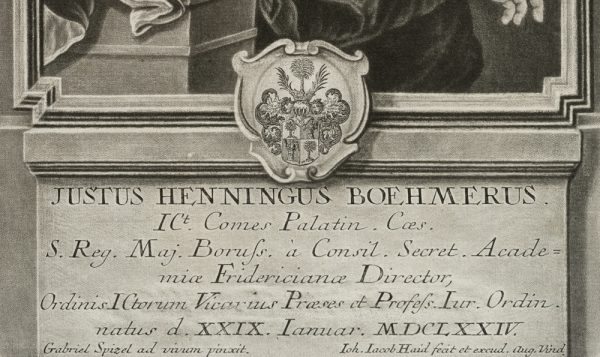 JUSTUS HENNINGUS BOEHMERUS.
ICt. Comes Palatin. Cæs.
S. Reg. Maj. Boruſs. à Consil. Secret. Acade=
miæ Fridericianæ Director,
Ordinis ICtorum Vicarius Præses et Profeſs. Iur. Ordin.
natus d. XXIX. Ianuar. MDCLXXIV.
Gabriel Spizel ad vivum pinxit.
Ioh. Iacob Haid fecit et excud. Aug. Vind